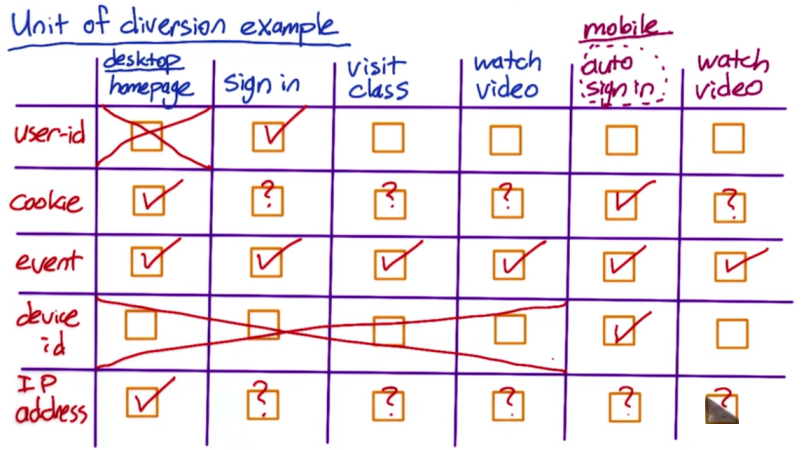 Unit of diversion example
mobile
desktop homepage
sign in
visit class
watch video
auto sign in
watch video
user-id
✓
cookie
✓ ? ? ? ✓ ?
event
✓ ✓ ✓ ✓ ✓ ✓
device id
✓
IP address
✓ ? ? ? ? ?